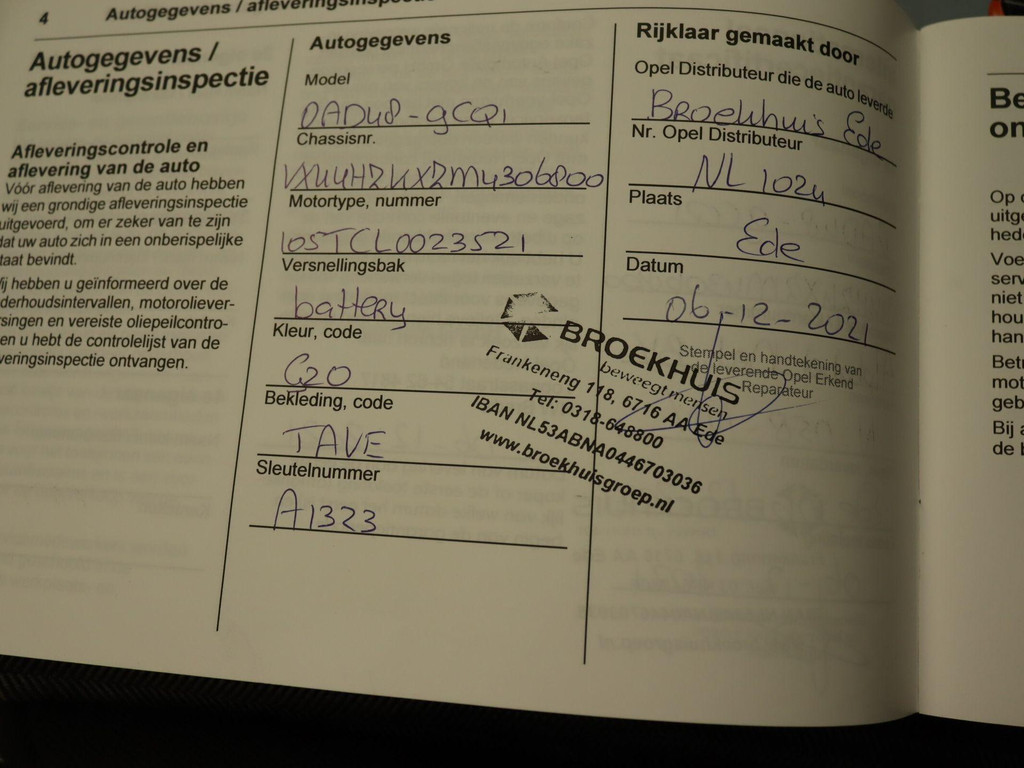 4
Autogegevens / afleveringsinspectie
Autogegevens /
afleveringsinspectie
Afleveringscontrole en
aflevering van de auto
Vóór aflevering van de auto hebben
wij een grondige afleveringsinspectie
uitgevoerd, om er zeker van te zijn
dat uw auto zich in een onberispelijke
staat bevindt.
Wij hebben u geïnformeerd over de
derhoudsintervallen, motoroliever-
singen en vereiste oliepeilcontro-
en u hebt de controlelijst van de
veringsinspectie ontvangen.
Autogegevens
Model
0ADU48-gCQ1
Chassisnr.
VXUUHZKXZM4306800
Motortype, nummer
LOSTCL0023521
Versnellingsbak
battery
Kleur, code
G20
Bekleding, code
TAVE
Sleutelnummer
A1323
Rijklaar gemaakt door
Opel Distributeur die de auto leverde
Broekhuis Ede
Nr. Opel Distributeur
NL 1024
Plaats
Ede
Datum
06-12-2021
Stempel en handtekening van
de leverende Opel Erkend
Reparateur
BROEKHUIS
beweegt mensen
Frankeneng 118, 6716 AA Ede
Tel: 0318-648800
IBAN NL53ABNA0446703036
www.broekhuisgroep.nl
Be
on
Op
uitge
hede
Voe
serv
niet
hou
han
Bet
mot
geb
Bij a
de b